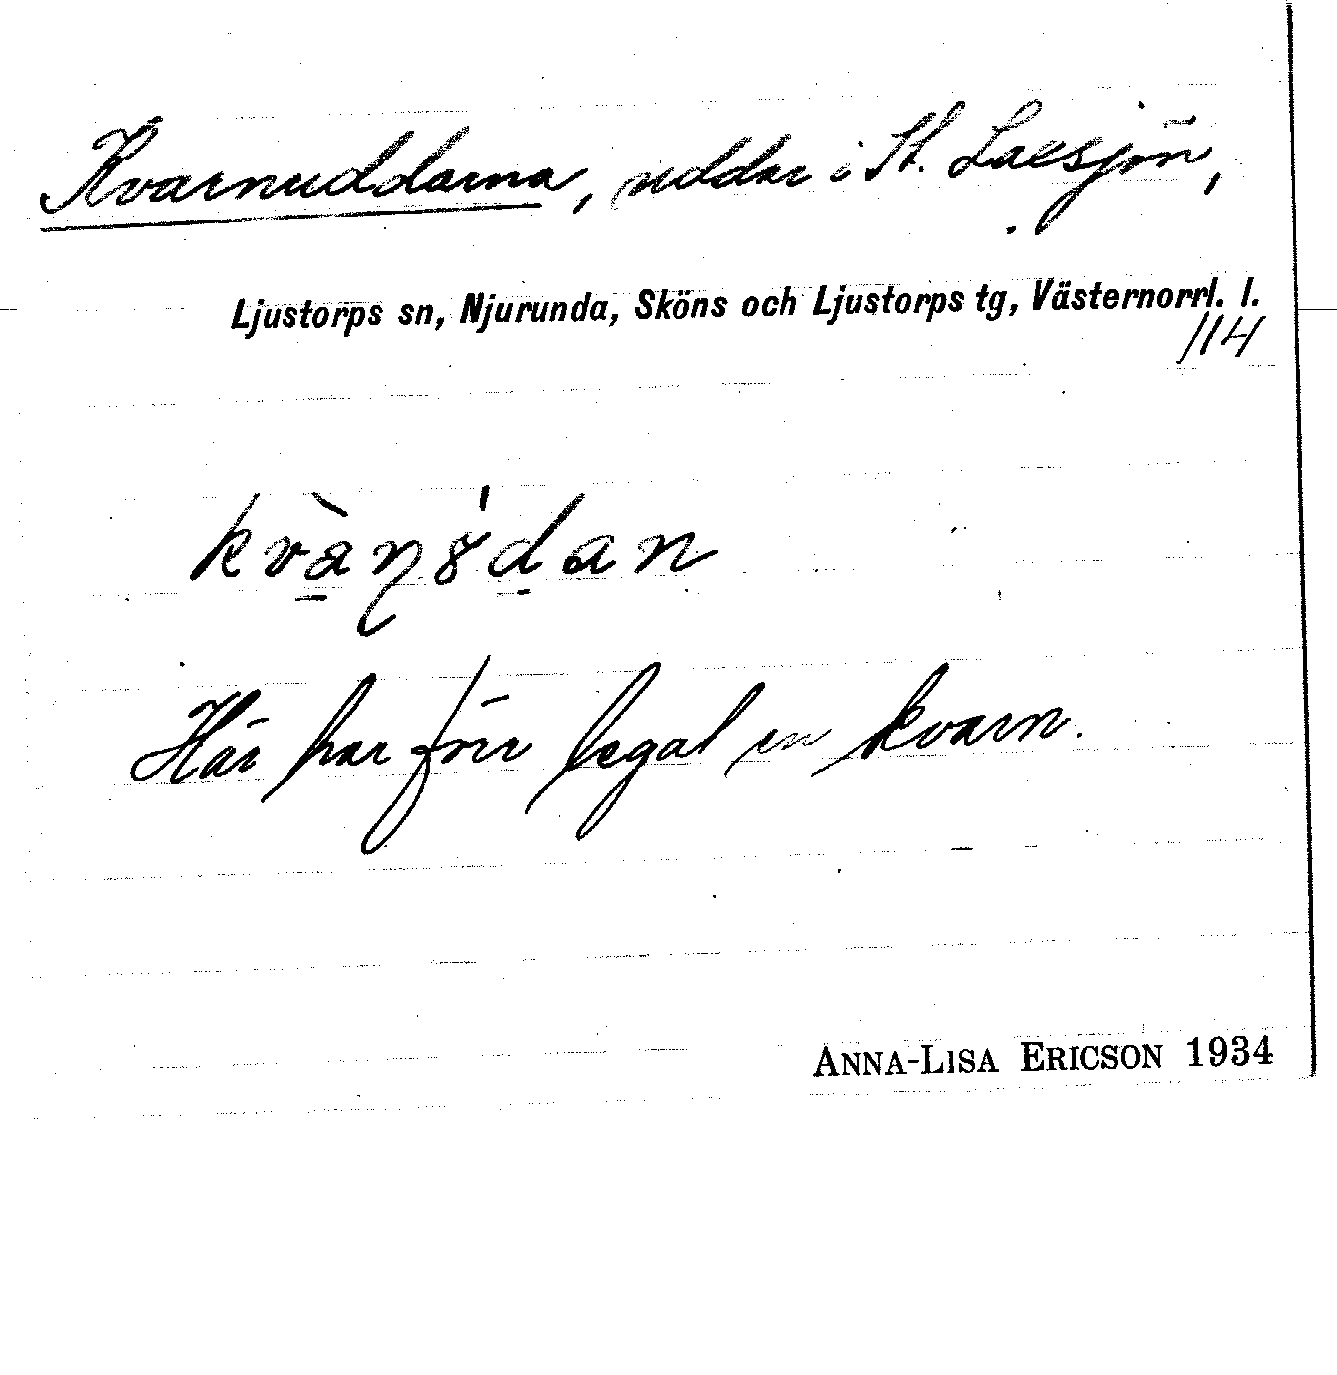 Kvarnuddarna, uddar i St. Laxsjön,
Ljustorps sn, Njurunda, Sköns och Ljustorps tg, Västernorrl. l.
114
Här har förr legat en kvarn.
ANNA-LISA ERICSON 1934